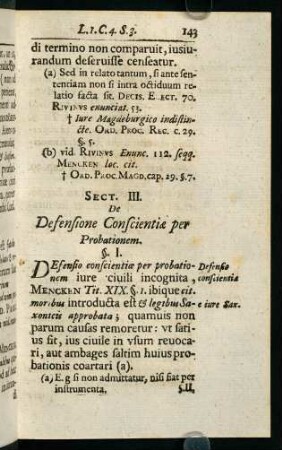 L. 1. C. 4. S. 3.
143
di termino non comparuit, iusiu-
randum deseruisse censeatur.
(a) Sed in relato tantum, si ante sen-
tentiam non si intra octiduum re-
latio facta sit. DECIS. ELECT. 70.
RIVINUS enunciat. 53.
† Iure Magdeburgico indistin-
cte. ORD. PROC. REG. c. 29.
§. 5.
(b) vid. RIVINVS Enunc. 112. seqq.
MENCKEN loc. cit.
† ORD. PROC. MAGD, cap. 29. §. 7.
SECT. III.
De
Defensione Conscientiæ per
Probationem.
§. I.
DEfensio conscientiæ per probatio-
nem iure ciuili incognita,
MENCKEN Tit. XIX. §. 1. ibique cit.
moribus introducta est & legibus Sa-
xonicis approbata; quamuis non
parum causas remoretur: vt sati-
us sit, ius ciuile in vsum reuoca-
ri, aut ambages saltim huius pro-
bationis coartari (a).
Defensio
conscientiæ
e iure Sax.
(a) E. g si non admittatur, nisi fiat per
instrumenta.
§.II.